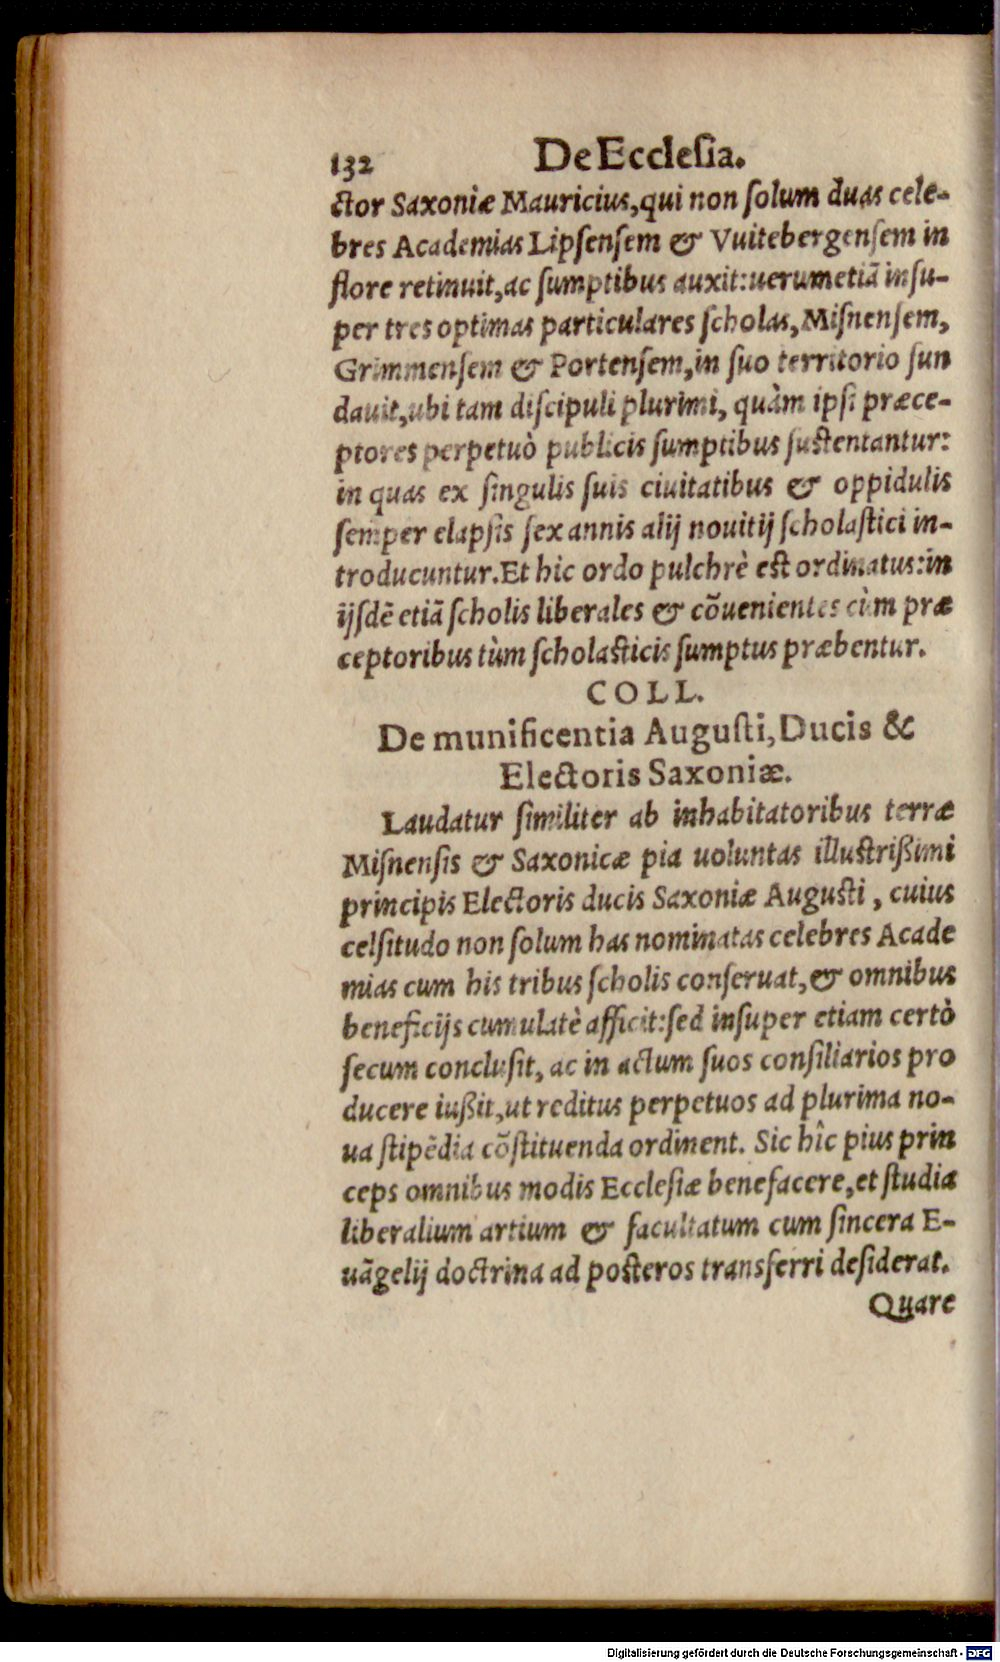 132 De Ecclesia.
ctor Saxoniæ Mauricius, qui non ſolum duas cele-
bres Academias Lipſenſem & Vuitebergenſem in
flore retinuit, ac ſumptibus auxit: uerumetiã inſu-
per tres optimas particulares ſcholas, Miſnenſem,
Grimmenſem & Portenſem, in ſuo territorio fun
dauit, ubi tam diſcipuli plurimi, quàm ipſi præce-
ptores perpetuò publicis ſumptibus ſuſtentantur:
in quas ex ſingulis ſuis ciuitatibus & oppidulis
ſemper elapſis ſex annis alij nouitij ſcholaſtici in-
troducuntur. Et hic ordo pulchrè eſt ordinatus: in
ijſdẽ etiã ſcholis liberales & cõuenientes cùm præ
ceptoribus tùm ſcholaſticis ſumptus præbentur.
COLL.
De munificentia Auguſti, Ducis &
Electoris Saxoniæ.
Laudatur ſimiliter ab inhabitatoribus terræ
Miſnenſis & Saxonicæ pia uoluntas illuſtrißimi
principis Electoris ducis Saxoniæ Auguſti, cuius
celſitudo non ſolum has nominatas celebres Acade
mias cum his tribus ſcholis conſeruat, & omnibus
beneficijs cumulatè afficit: ſed inſuper etiam certò
ſecum concluſit, ac in actum ſuos conſiliarios pro
ducere iußit, ut reditus perpetuos ad plurima no-
ua ſtipẽdia cõſtituenda ordinent. Sic hîc pius prin
ceps omnibus modis Eccleſiæ benefacere, et ſtudia
liberalium artium & facultatum cum ſincera E-
uãgelij doctrina ad poſteros transferri deſiderat.
Quare
Digitalisierung gefördert durch die Deutsche Forschungsgemeinschaft - DFG